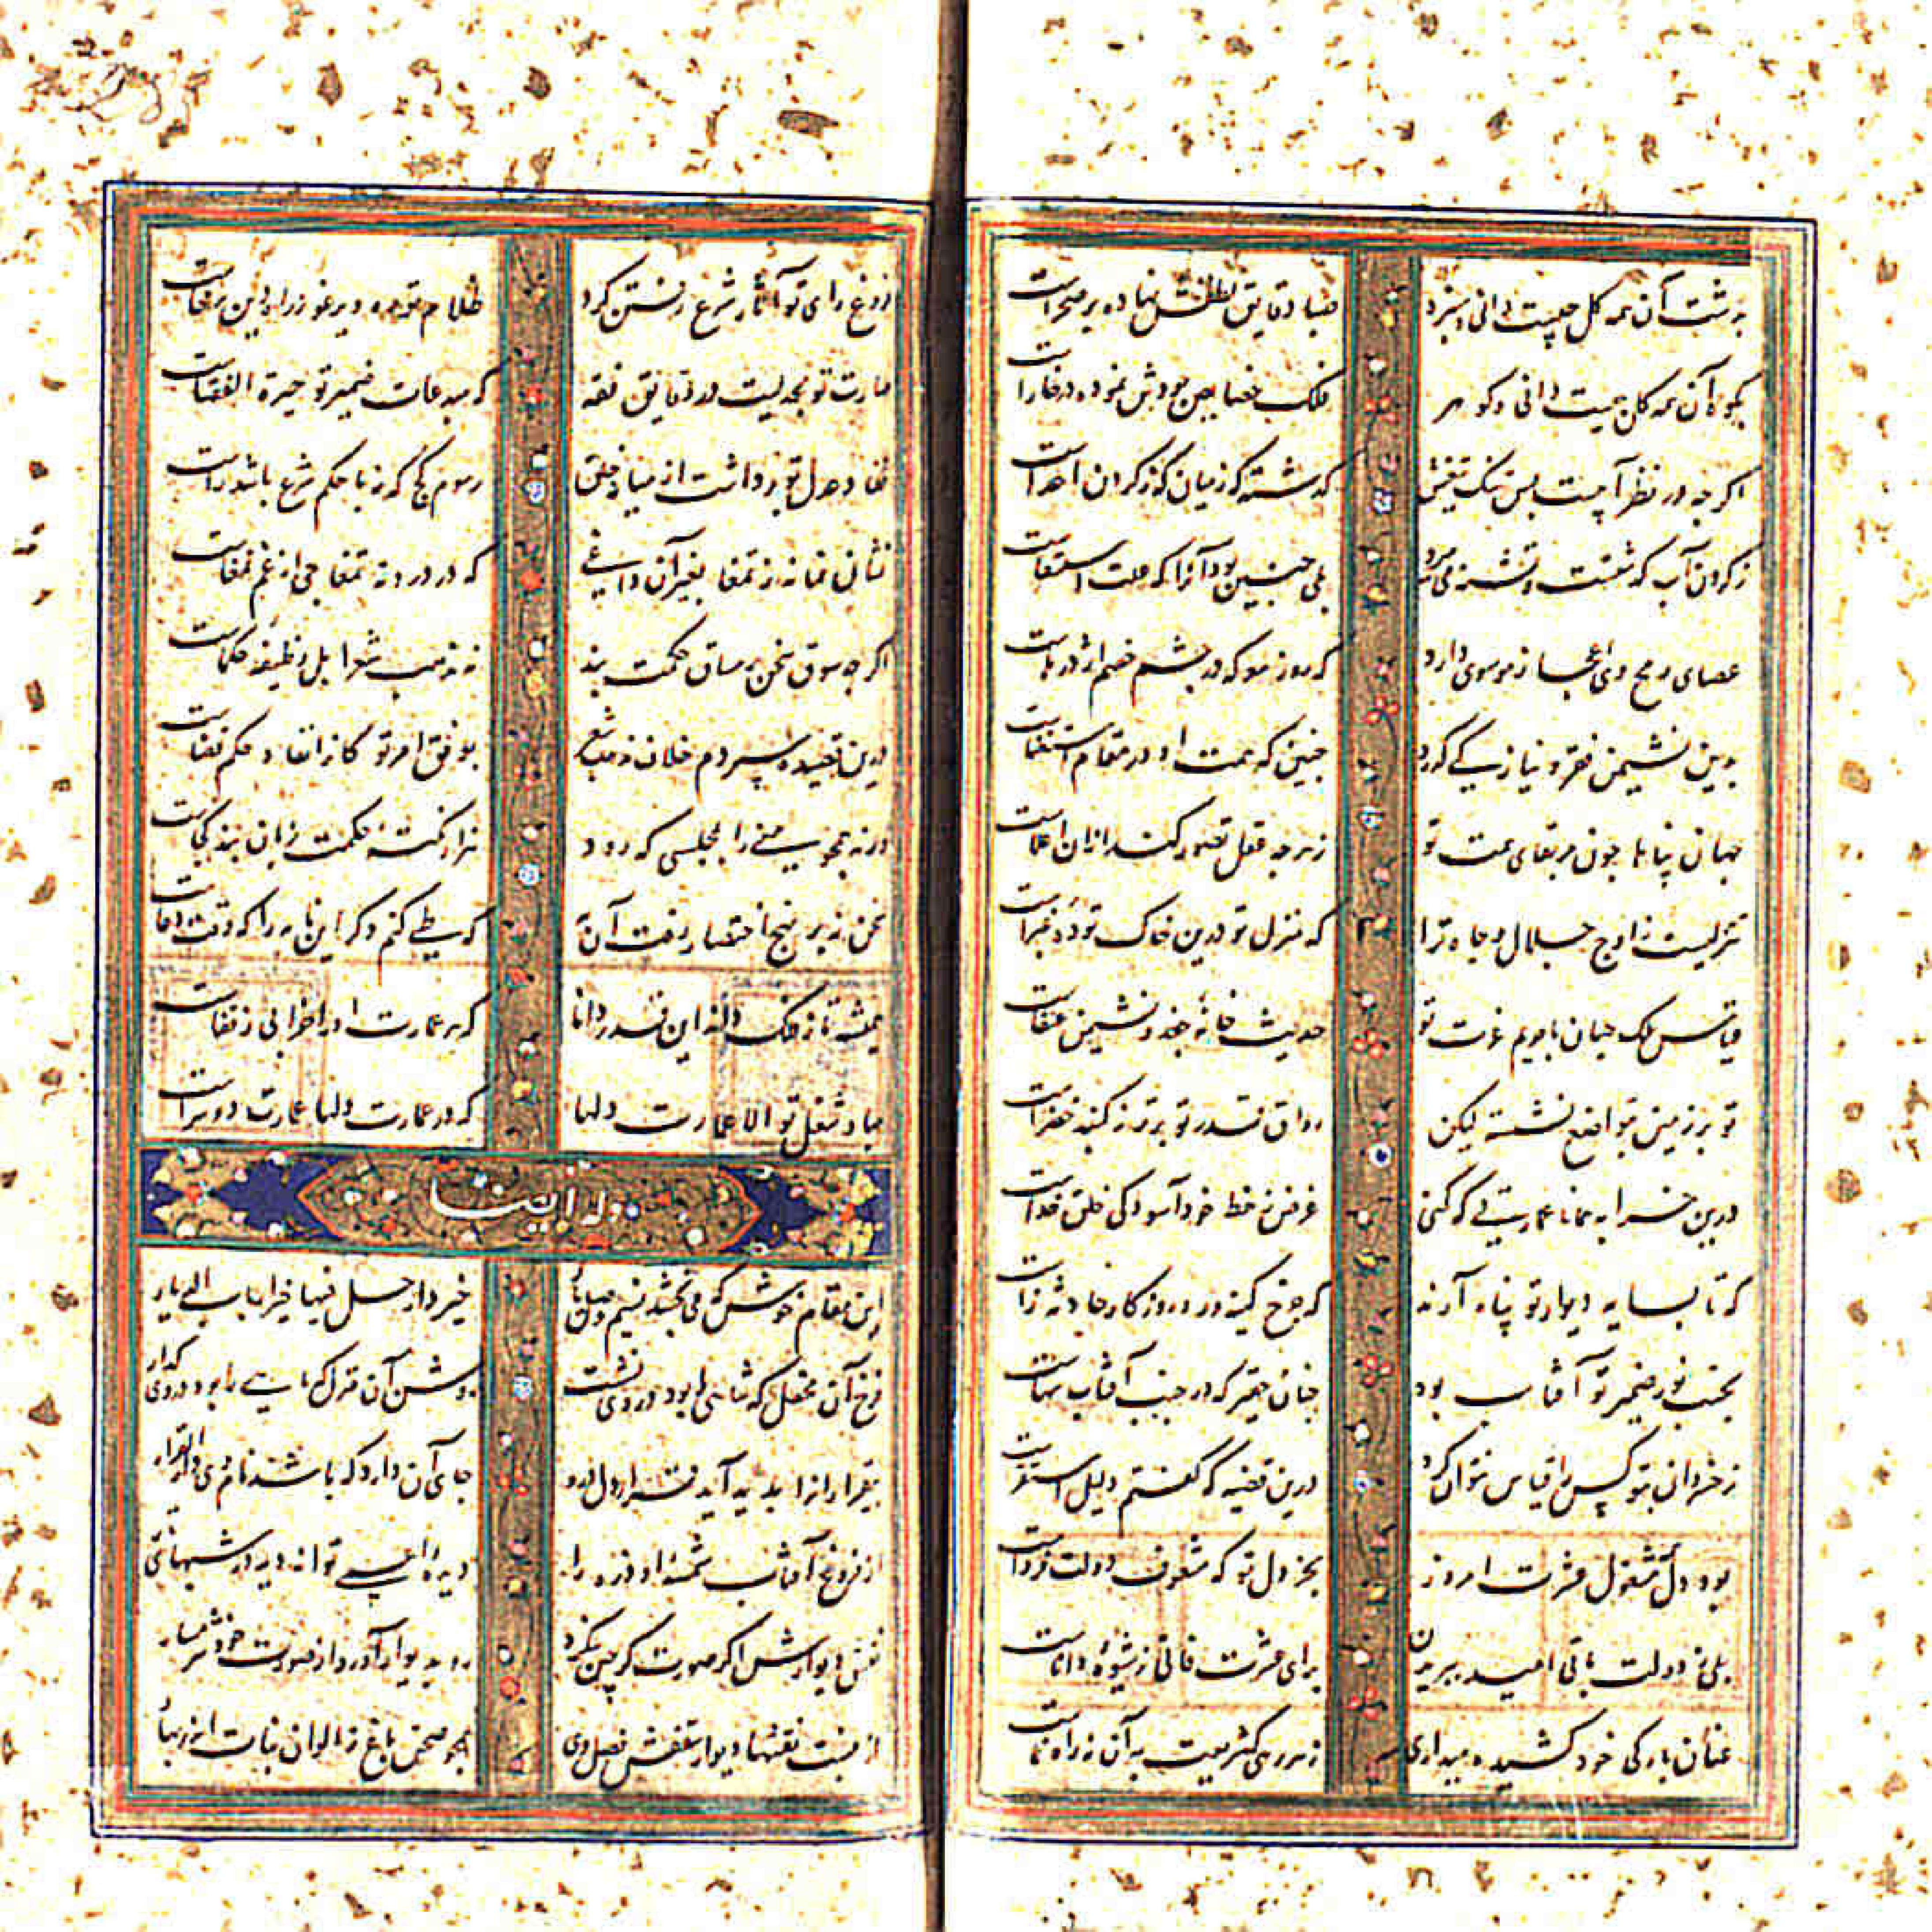 بدشت آن همه گل چیست دانی و سبزه صبا دقایق لطفش نهاده بر صحراست
بکوه آن همه کان چیست دانی و کوهر فلک خصایص جودش نموده در خاراست
اگر چه در نظر آبیست بس تنک تیغش گذشته گاه زمیان که ز گردن اعداست
ز گردن آب گذشتست و تشنه می میرد بلی چنین بود آنرا که علت استسقاست
عصای رمح وی اعجاز موسوی دارد که روز معرکه در چشم خصم اژدرهاست
بدین نشیمن فقر و نیاز کی گذرد چنین که همت او در مقام استغناست
جهان پناها چون مرتقای همت تو ز هر چه عقل تصور کند ازان اعلاست
تنزلیست ز اوج جلال و جاه ترا که منزل تو درین خاک توده غبراست
قیاس ملک جهان با حریم عزت تو حدیث خانه جغد و نشیمن عنقاست
تو بر زمین بتواضع نشسته لیکن رواق قدر تو برتر ز گنبد خضراست
درین خرابه همانا عمارتی که کنی غرض نه حظ خود آسودگی خلق خداست
که تا بسایه دیوار تو پناه آرند که چرخ کینه ور و روزگار حادثه زاست
بجنب نور ضمیر تو آفتاب بود چنان حقیر که در جنب آفتاب سهاست
ز خسروان بتو کس را قیاس نتوان کرد درین قضیه که گفتم دلیل استقراست
بود دل مشغول عشرت امروز بجز دل تو که مشعوف دولت فرداست
بلی ز دولت باقی امید ببریدن برای عشرت فانی نه شیوه داناست
عنان بارگی خود کشیده میداری ز هر رهی که شریعت به آن نه راه نماست
فروغ رای تو آثار شرع روشن کرد ظلام
مهارت تو بحدیست در دقایق فقه که مبدعات ضمیر تو حیرة الفقهاست
نفاذ عدل تو برداشت از میان خلق رسوم کج که نه با حکم شرع باشد راست
نشان نمانده ز تمغا بغیر آن داغی که در درونه تمغاچی از غم تمغاست
اگر چه سوق سخن بر مساق حکمت و پند نه مذهب شعرا بل وظیفه حکماست
درین قصیده سپردم خلاف مذهب شعر بوفق امر تو کانرا نفاذ حکم قضاست
ورنه همچو منی را بمجلسی که رود هزار نکته ز حکمت زبان پند کجاست
سخن ز بهر نهج اختصار رفت آن به که طی کنم دگر این نامه را که وقت دعاست
همیشه تا ز فلک داند این قدر دانا که هر عمارت او را خرابی ز قفاست
مباد شغل تو الا عمارت دلها که در عمارت دلها عمارت دو سراست
وله ایضا
این مقام خوش که می بخشد نسیم خیر دار حل فیها خیر ارباب الدیار
فرخ آن محفل که شاهی را بود در وی نشست روشن آن منزل که ماهی را بود در وی گذار
بیقرارانرا بدید آید قرار دل درو جای آن دارد که باشد نام وی دار القرار
از فروغ آفتاب شمسه او ذره را دیدن اعمی تواند دید در شبهای تار
نقش دیوارش اگر صورتگر چین بنگرد رو بدیوار آورد از صورت خود شرمسار
از نقشها دیوار و سقفش فصل دی همچو صحن باغ ز الوان نبات اندر بهار